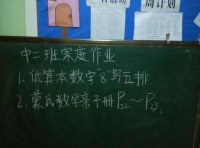 周计划
中二班家庭作业
1.低算本数字“8”写五排
2.蒙氏数学亲子册P22～P23